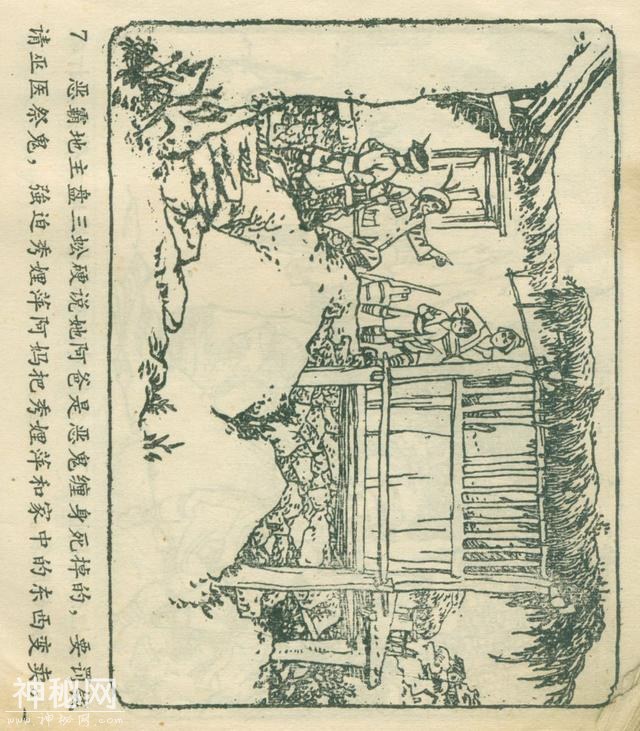 7 恶霸地主盘三蚣硬说她阿爸是恶鬼缠身死掉的，要
请巫医祭鬼，強迫秀娌萍阿妈把秀娌萍和家中的东西变卖
神秘网
www.神秘网.com